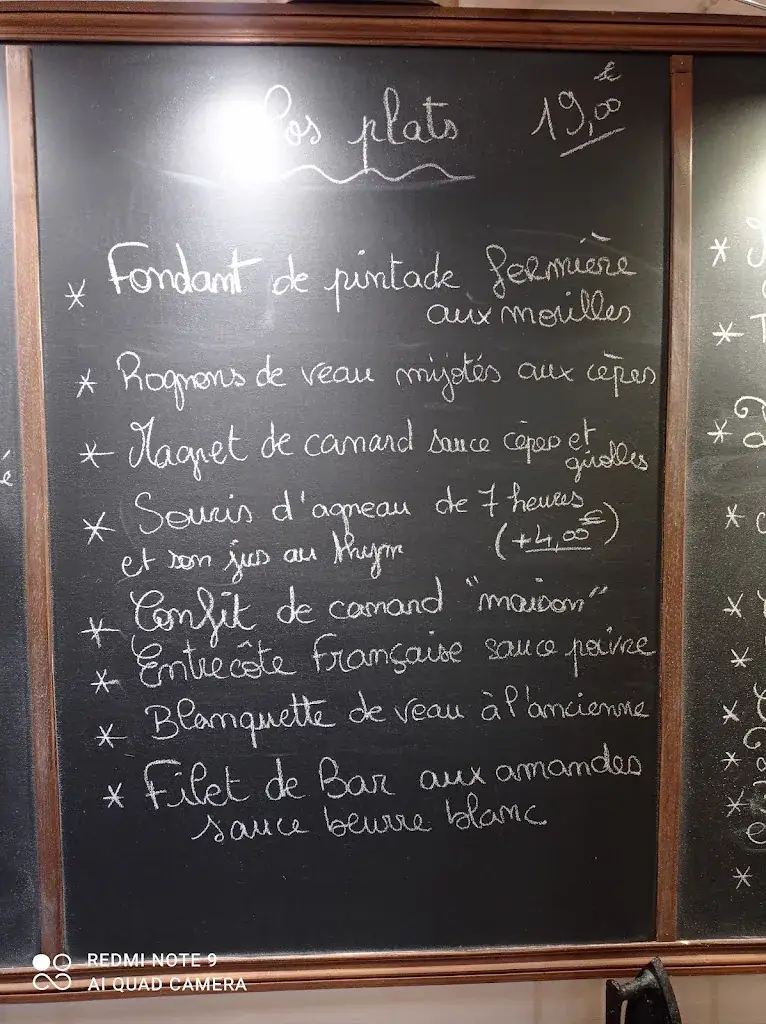 Los plats 19,00 €
* Fondant de pintade fermière
aux morilles
* Rognons de veau mijotés aux cèpes
* Magret de canard sauce cèpes et
girolles
* Souris d'agneau de 7 heures
et son jus au thym (+4,00€)
* Confit de canard "maison"
* Entrecôte Française sauce poivre
* Blanquette de veau à l'ancienne
* Filet de Bar aux amandes
sauce beurre blanc
REDMI NOTE 9
AI QUAD CAMERA